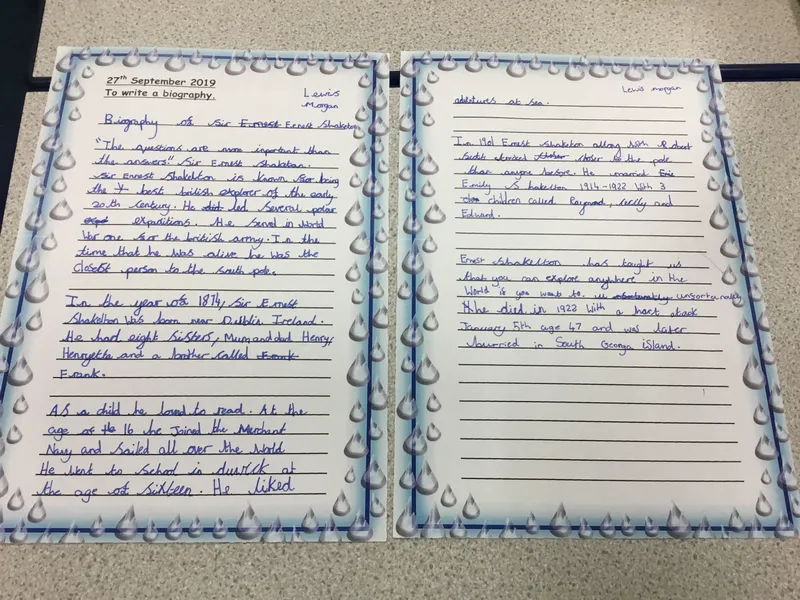 27th September 2019
To write a biography.
Lewis
Morgan
Biography of Sir Ernest Ernest Shakelton
"The questions are more important than
the answers" Sir Ernest Shakelton.
Sir Ernest Shakelton is known for being
the best british explorer of the early
20th century. He did led several polar
expditions. He served in World
War one for the british army. In the
time that he was alive he was the
closest person to the south pole.
In the year of 1874, Sir Ernest
Shakelton was born near Dublin Ireland.
He had eight sisters, Mum and dad Henry,
Henryetta and a brother called Frank
Frank.
As a child he loved to read. At the
age of 16 he joined the Merchant
Navy and sailed all over the world
He went to school in duwlick at
the age of sixteen. He liked
Lewis morgan
at sea.
In 1901 Ernest Shakelton along with R
closer to the pole
than anyone before. He married
Emily Shakelton 1914-1922 with 3
children called Raymond, and
Edward.
Ernest Shakelton has taught us
that you can explore anywhere in the
World if you want to.
he died in 1922 with a hart atack
January 5th age 47 and was later
burried in South Georga island.